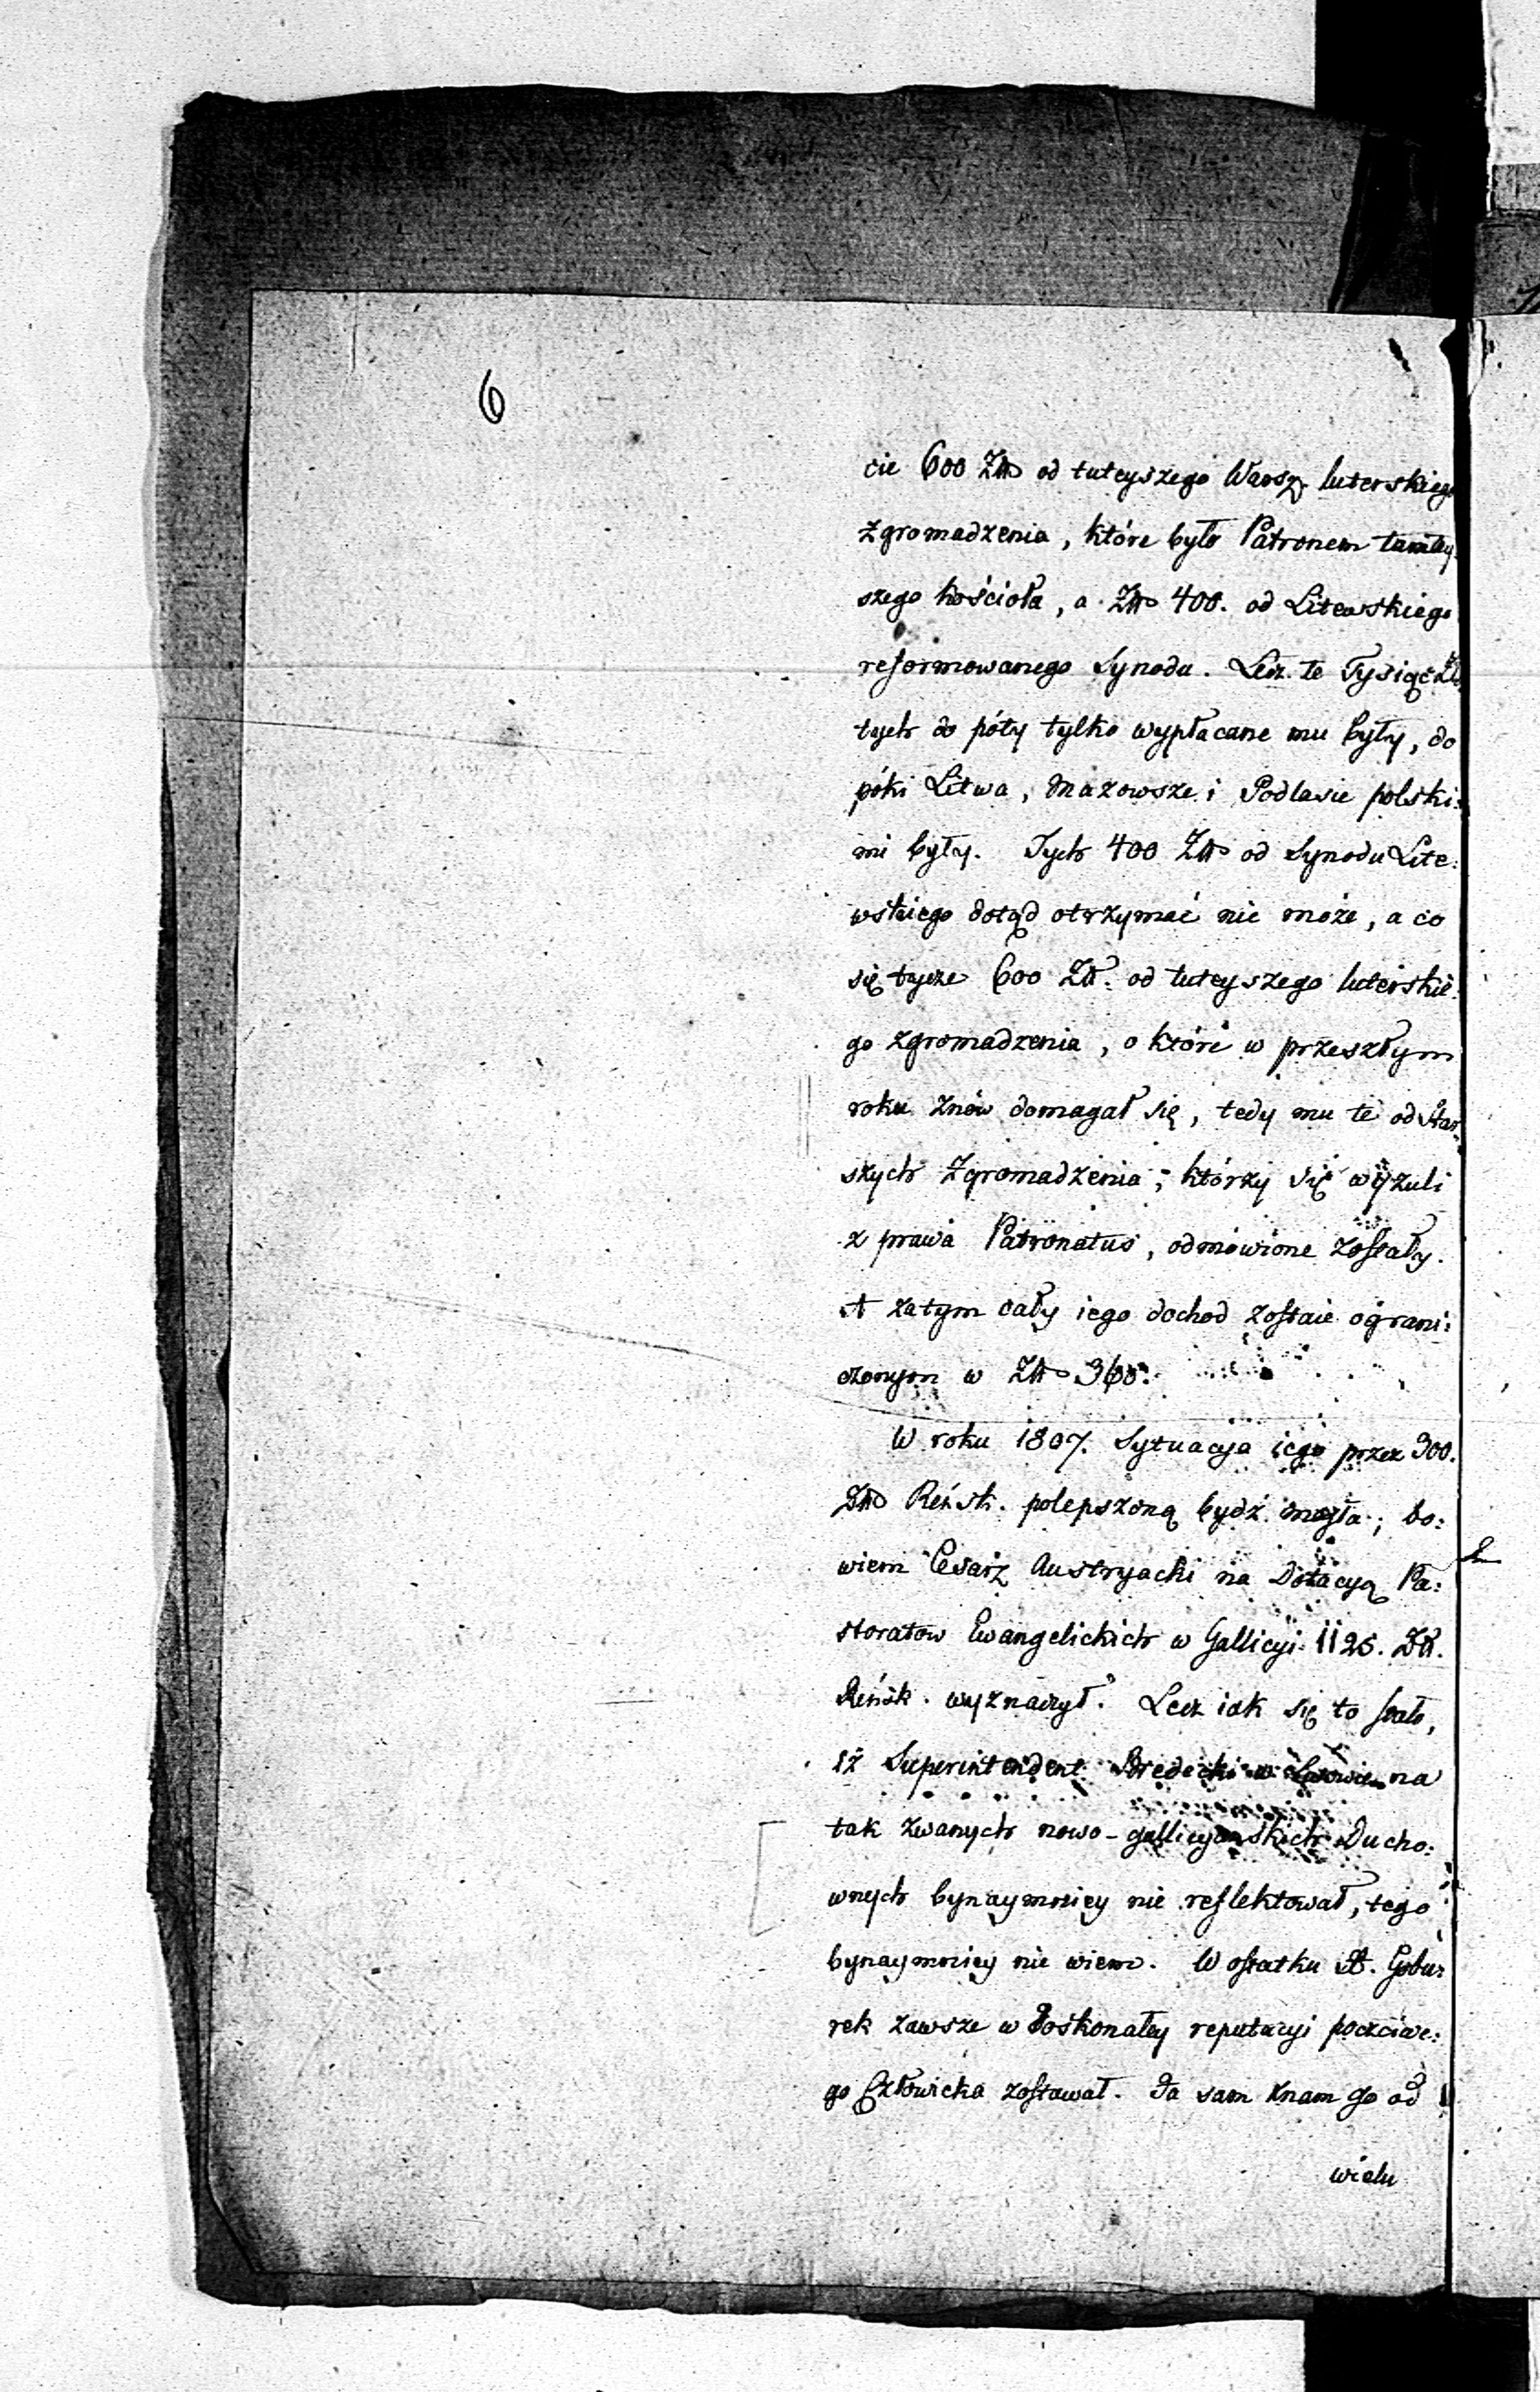 6
cie 600 Zł. od tuteyszego Warsz. luterskiego
zgromadzenia, które było Patronem tamtey
szego kościoła, a Zł. 400. od Litewskiego
reformowanego Synodu. Lecz te Tysiąc Zło
tych do póty tylko wypłacane mu były, do
póki Litwa, Mazowsze i Podlasie polski:
mi były. Tych 400 Zł. od Synodu Lite:
wskiego dotąd otrzymać nie może, a co
się tycze 600 Zł. od tuteyszego luterskie:
go zgromadzenia, o które w przeszłym
roku znów domagał się, tedy mu te od Star
szych Zgromadzenia, którzy się wyzuli
z prawa Patronatus, odmówione zostały.
A zatym cały iego dochod zostaie ograni:
czonym w Zł. 360.
W roku 1807. Sytuacya iego przez 300.
Zł. Reńsk. polepszoną bydź mogła; bo:
wiem Cesarz Austryacki na Dotacyą Pa:
storatow Ewangelickich w Gallicyi 1125. Zł.
Reńsk. wyznaczył. Lecz iak się to stało,
iż Superintendent Bredecki w Lwowie na
tak zwanych nowo-gallicyanskich Ducho:
wnych bynaymniey nie reflektował, tego
bynaymniey nie wiem. W ostatku X. Gobu:
rek zawsze w doskonałey reputacyi poczciwe:
go Człowieka zostawał. Ja sam znam go od
wielu